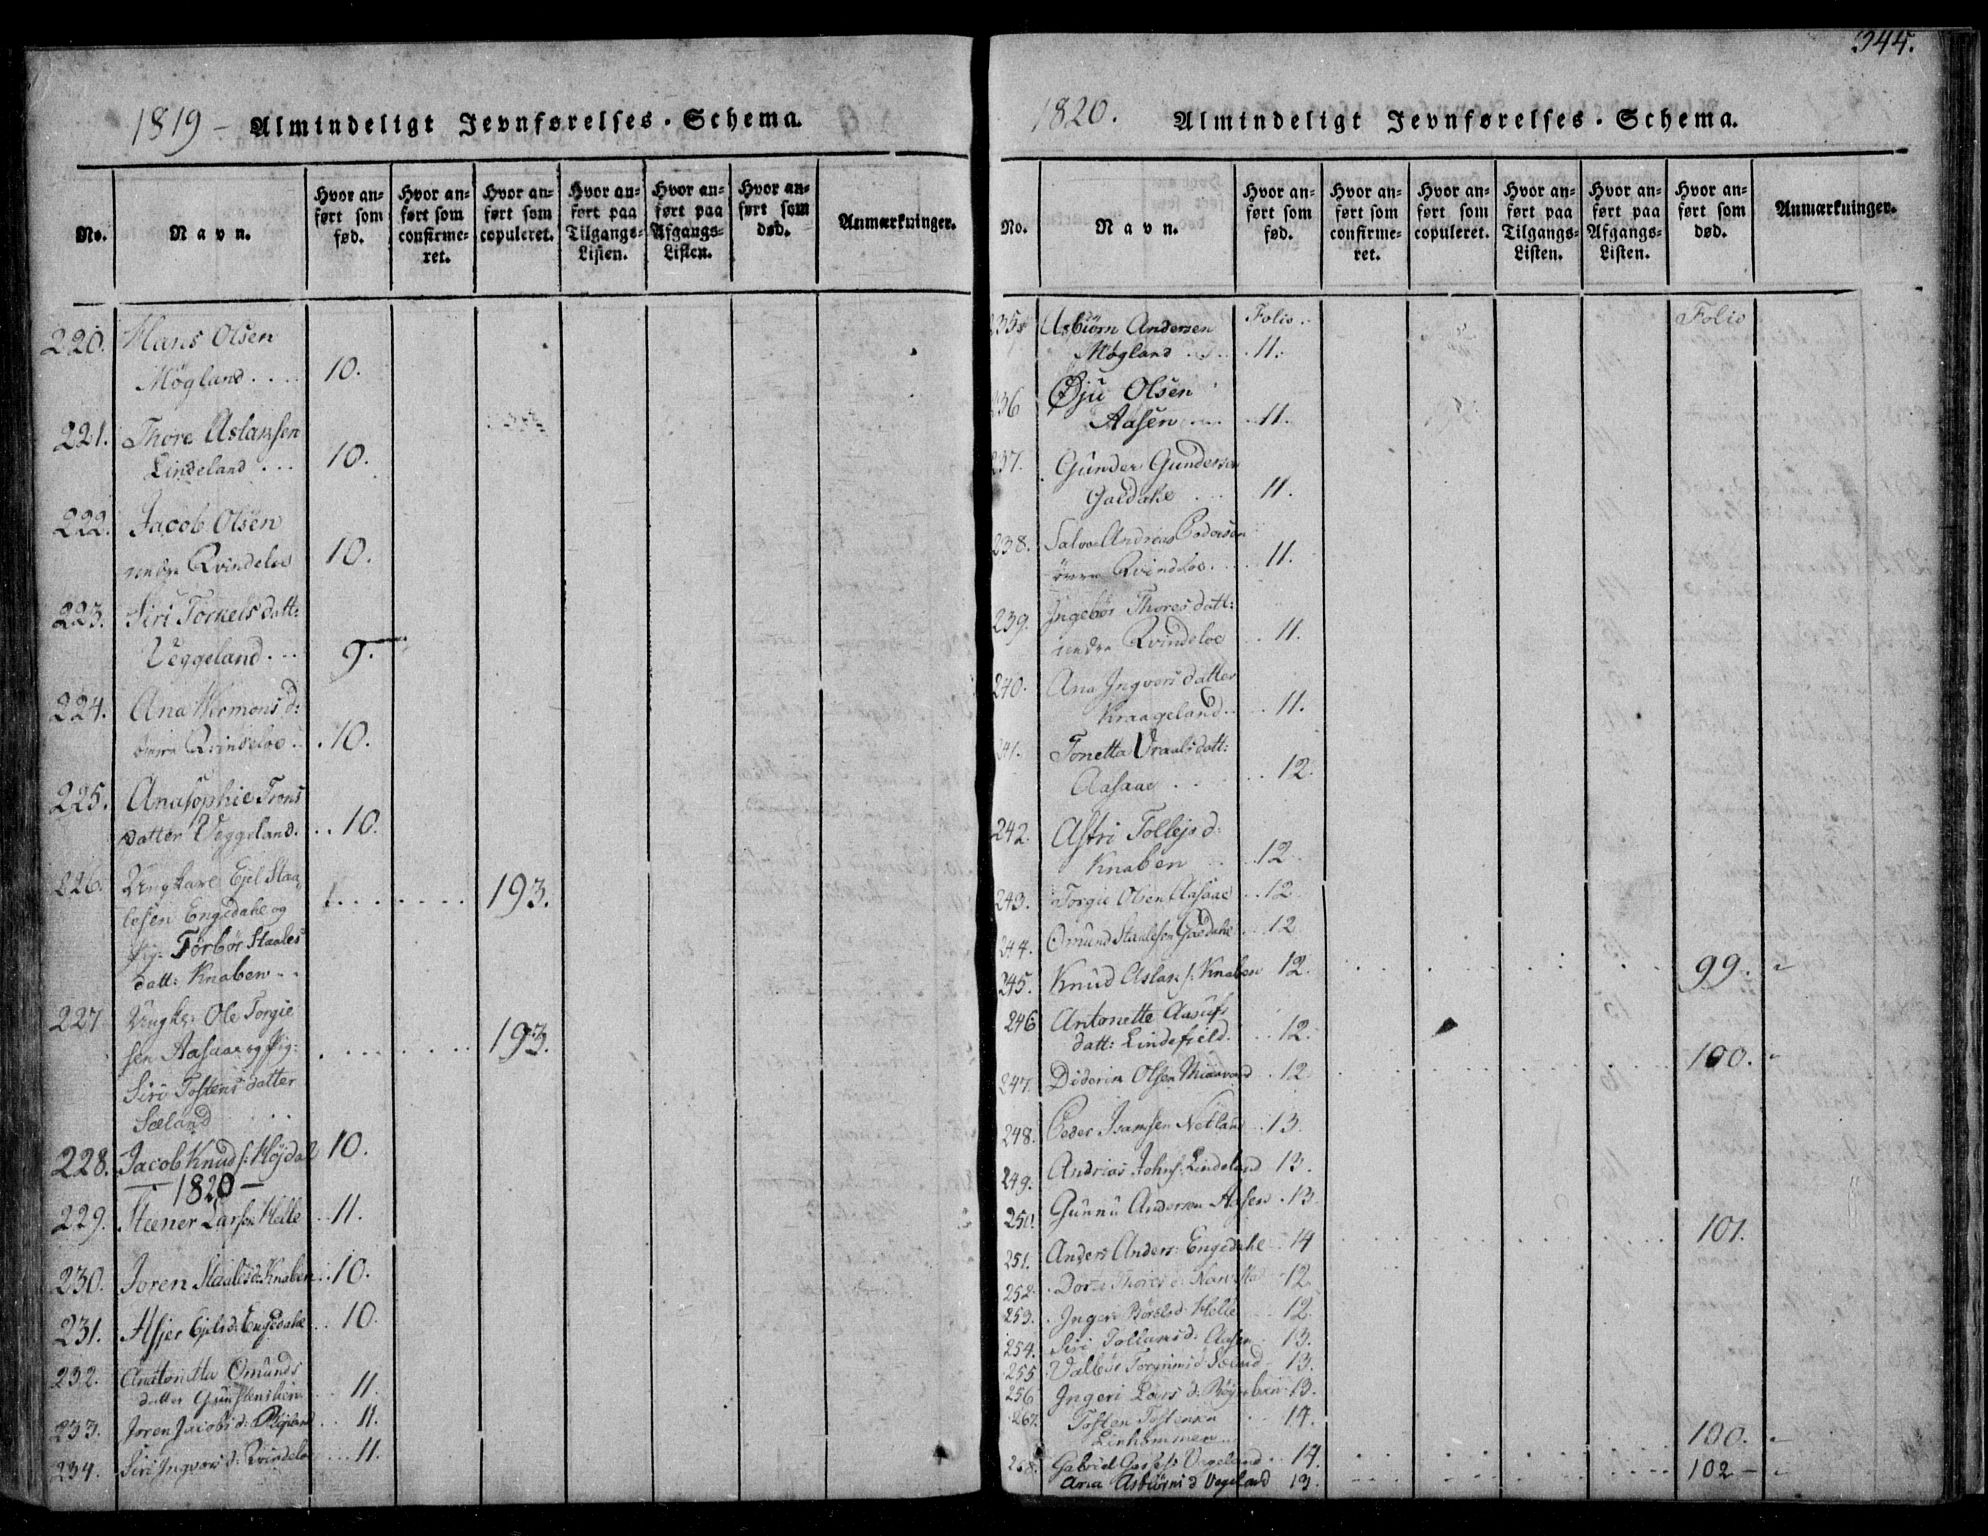 1819 – Almindeligt Jevnførelses-Schema.
No. Navn. Hvor anført som fød. Hvor anført som confirmeret. Hvor anført som copuleret. Hvor anført paa Tilgangs-Listen. Hvor anført paa Afgangs-Listen. Hvor anført som død. Anmærkninger.
220. Hans Olsen
Møgland .... 10.
221. Thore Aslansen
Lindeland ... 10.
222. Jacob Olsen
nedre Qvindeloe 10.
223. Siri Torkels datt:
Veggeland ... 9.
224. Ana d:
øvre Qvindeloe .. 10.
225. Anasophie Trons
datter Veggeland. .. 10.
226. Ungkarl Ejel Staa
lesen Engedahl og ....... 193.
Pig: Torbør Staales
datt: Knaben ..
227 Ungk: Ole Torgie
sen Aasaae og Pig: ....... 193.
Siri Tostens datter
Sæland
228. Jacob Knud s: Højdal 10.
– 1820 –
229. Steener Larsen Helle .. 11.
230. Joren Staalesd: Knaben .. 10.
231. Asjer Ejelsd: Engedahl .. 10.
232. Omunds
datter .. 11.
233. Joren Jacobs d: .. 11.
234. Siri Ingvors d: Qvindeloe ... 11.
344.
1820. Almindeligt Jevnførelses-Schema.
No. Navn. Hvor anført som fød. Hvor anført som confirmeret. Hvor anført som copuleret. Hvor anført paa Tilgangs-Listen. Hvor anført paa Afgangs-Listen. Hvor anført som død. Anmærkninger.
235. Asbiørn Andersen Folio. Folio
Møgland ... 11.
236 Øju Olsen
Aasen ... 11.
237. Gunder Gundersen
Gaedahl ... 11.
238. Salve Andreas Pedersen
øvre Qvindeloe .... 11.
239. Ingebor Thores datt:
nedre Qvindeloe .. 11.
240. Ana Ingvors datter
Kraageland .. 11.
241. Tonetta Vraals datt:
Aasaae ... 12.
242. Astri Tollejs d:
Knaben .. 12
243. Torgie Olsen Aasaae .. 12
244. Omund Staalesen Gaedahl . 12
245. Knud Aslak s: Knaben 12. 99.
246 Antonette Aasufs
datt: Lindefield. .. 12.
247. Diderik Olsen .. 12. 100.
248. Peder Netland .. 13.
249. Andrias Johns: Lindeland 13.
250. Gunnu Andersen Aasen . 13.
251. Anders Anders: Engedahl .. 14 101.
252. Thores d: 12
253. Inger d: Helle 12
254. Siri d: Aasen . 13.
255 d: Sæland . 13.
256 Ingeri Lars d: 13.
267. Tosten Tostensen .. 14.
Linhommen .. 100.
268. Gabriel Vegeland .. 14. 102 –
Ana Asbiørns d Vegeland 13.